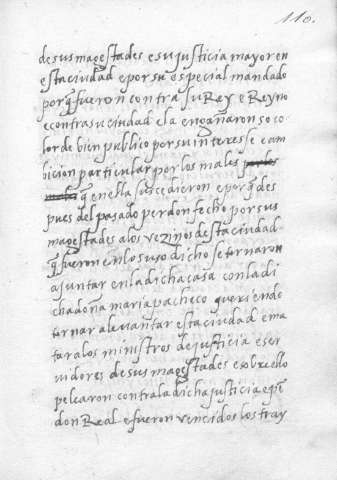 110.
de sus magestades e su justicia mayor en
esta ciudad e por su especial mandado
porq̃ fueron contra su Rey e Reyno
e contra su ciudad e la engañaron so co
lor de bien publico por su interesse e am
bicion particular por los males
q̃ en ella suscedieron e porq̃ des
pues del pasado perdon fecho por sus
magestades a los vezinos desta ciudad
q̃ fueron en lo suso dicho se tornaron
a juntar en la dicha casa con la di
cha doña maria pacheco queriendo
tornar a levantar esta ciudad e ma
tar a los ministros de justicia e ser
uidores de sus magestades e sobre ello
pelearon contra la dicha justicia e pe
don Real e fueron vencidos los tray